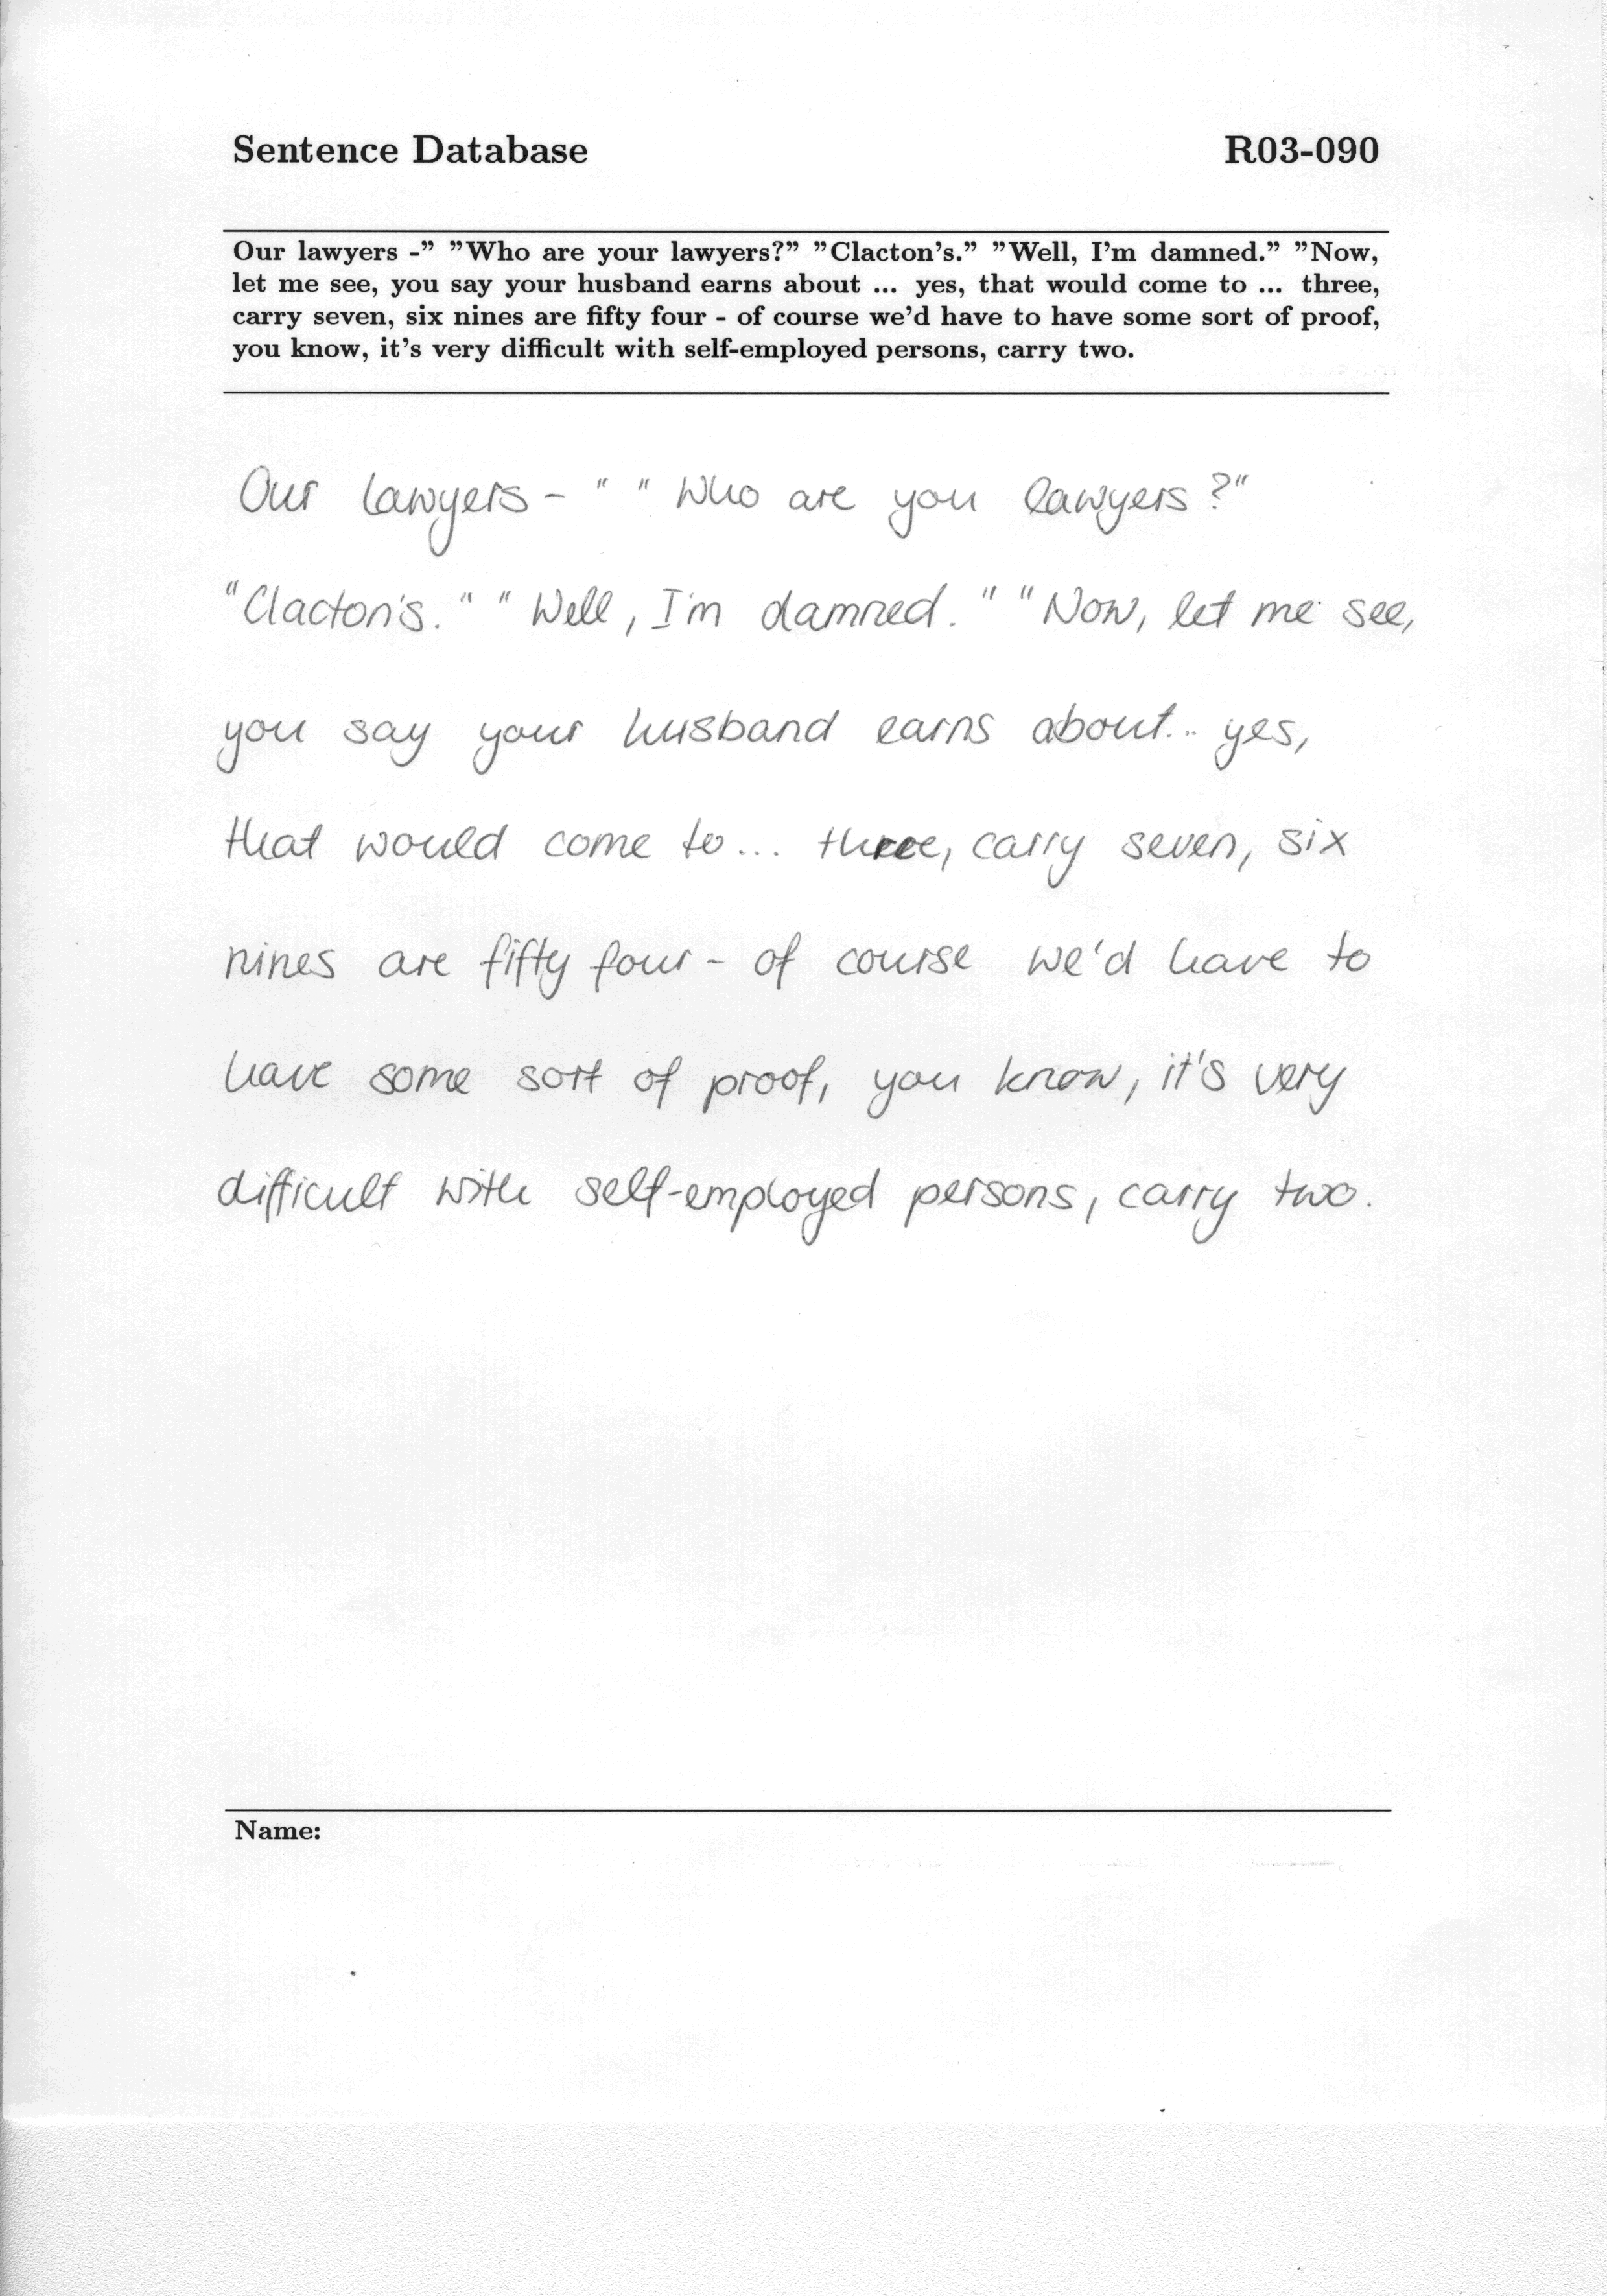 Sentence Database R03-090
Our lawyers -” ”Who are your lawyers?” ”Clacton’s.” ”Well, I’m damned.” ”Now,
let me see, you say your husband earns about ... yes, that would come to ... three,
carry seven, six nines are fifty four - of course we’d have to have some sort of proof,
you know, it’s very difficult with self-employed persons, carry two.
Our lawyers - " " Who are you lawyers ?"
"Clacton's. " " Well, I'm damned. " "Now, let me see,
you say your husband earns about... yes,
that would come to ... three, carry seven, six
nines are fifty four - of course we'd have to
have some sort of proof, you know, it's very
difficult with self-employed persons, carry two.
Name: